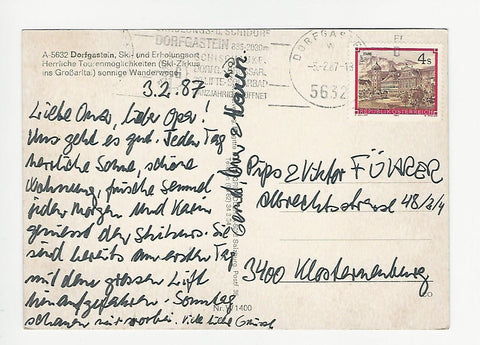 A-5632 Dorfgastein, Ski- und Erholungsort
Herrliche Tourenmöglichkeiten (Ski-Zirkus
ins Großarltal) sonnige Wanderwege
3.2.87
Liebe Oma, lieber Opa!
Uns geht es gut. Jeden Tag
herrliche Sonne, schöne
Wohnung, frische Semmel
jeden Morgen und Karin
genießt den Skikurs. Sie
sind bereits am ersten Tag
mit dem grossen Lift
hinaufgefahren. Sonntag
schauen wir vorbei. Viele liebe Grüsse
Karin
DORFGASTEIN 835-2033m
DORFGASTEIN
5632
4s
REPUBLIK ÖSTERREICH
Viktor FÜHRER
Albrechtstrasse 48/2/4
3400 Klosterneuburg
Nr. W1400